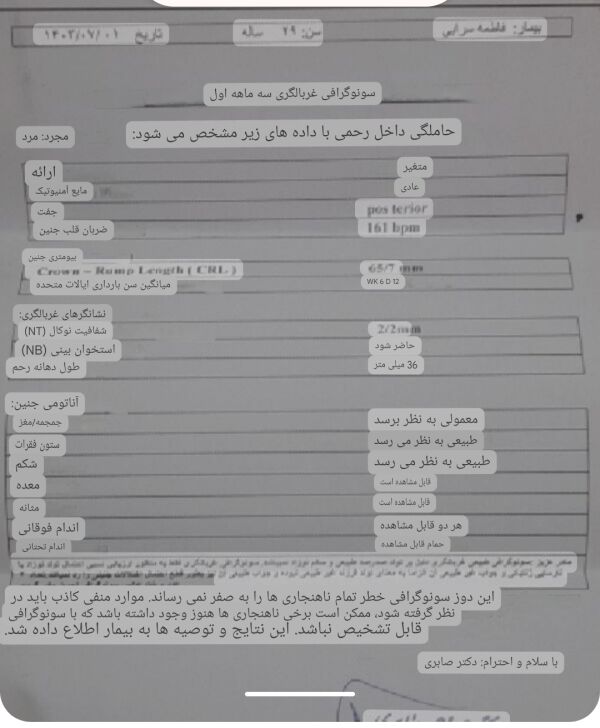 بیمار: فاطمه سرابی سن: ۲۹ ساله تاریخ ۱۴۰۳/۰۷/۰۱
سونوگرافی غربالگری سه ماهه اول
حاملگی داخل رحمی با داده های زیر مشخص می شود:
مجرد: مرد
ارائه متغیر
مایع آمنیوتیک عادی
جفت posterior
ضربان قلب جنین 161 bpm
بیومتری جنین
Crown – Rump Length ( CRL ) 65/7 mm
میانگین سن بارداری ایالات متحده WK 6 D 12
نشانگرهای غربالگری:
شفافیت نوکال (NT) 2/2mm
استخوان بینی (NB) حاضر شود
طول دهانه رحم 36 میلی متر
آناتومی جنین:
جمجمه/مغز معمولی به نظر برسد
ستون فقرات طبیعی به نظر می رسد
شکم طبیعی به نظر می رسد
معده قابل مشاهده است
مثانه قابل مشاهده است
اندام فوقانی هر دو قابل مشاهده
اندام تحتانی حمام قابل مشاهده
این دوز سونوگرافی خطر تمام ناهنجاری ها را به صفر نمی رساند. موارد منفی کاذب باید در
نظر گرفته شود، ممکن است برخی ناهنجاری ها هنوز وجود داشته باشد که با سونوگرافی
قابل تشخیص نباشد. این نتایج و توصیه ها به بیمار اطلاع داده شد.
با سلام و احترام: دکتر صابری